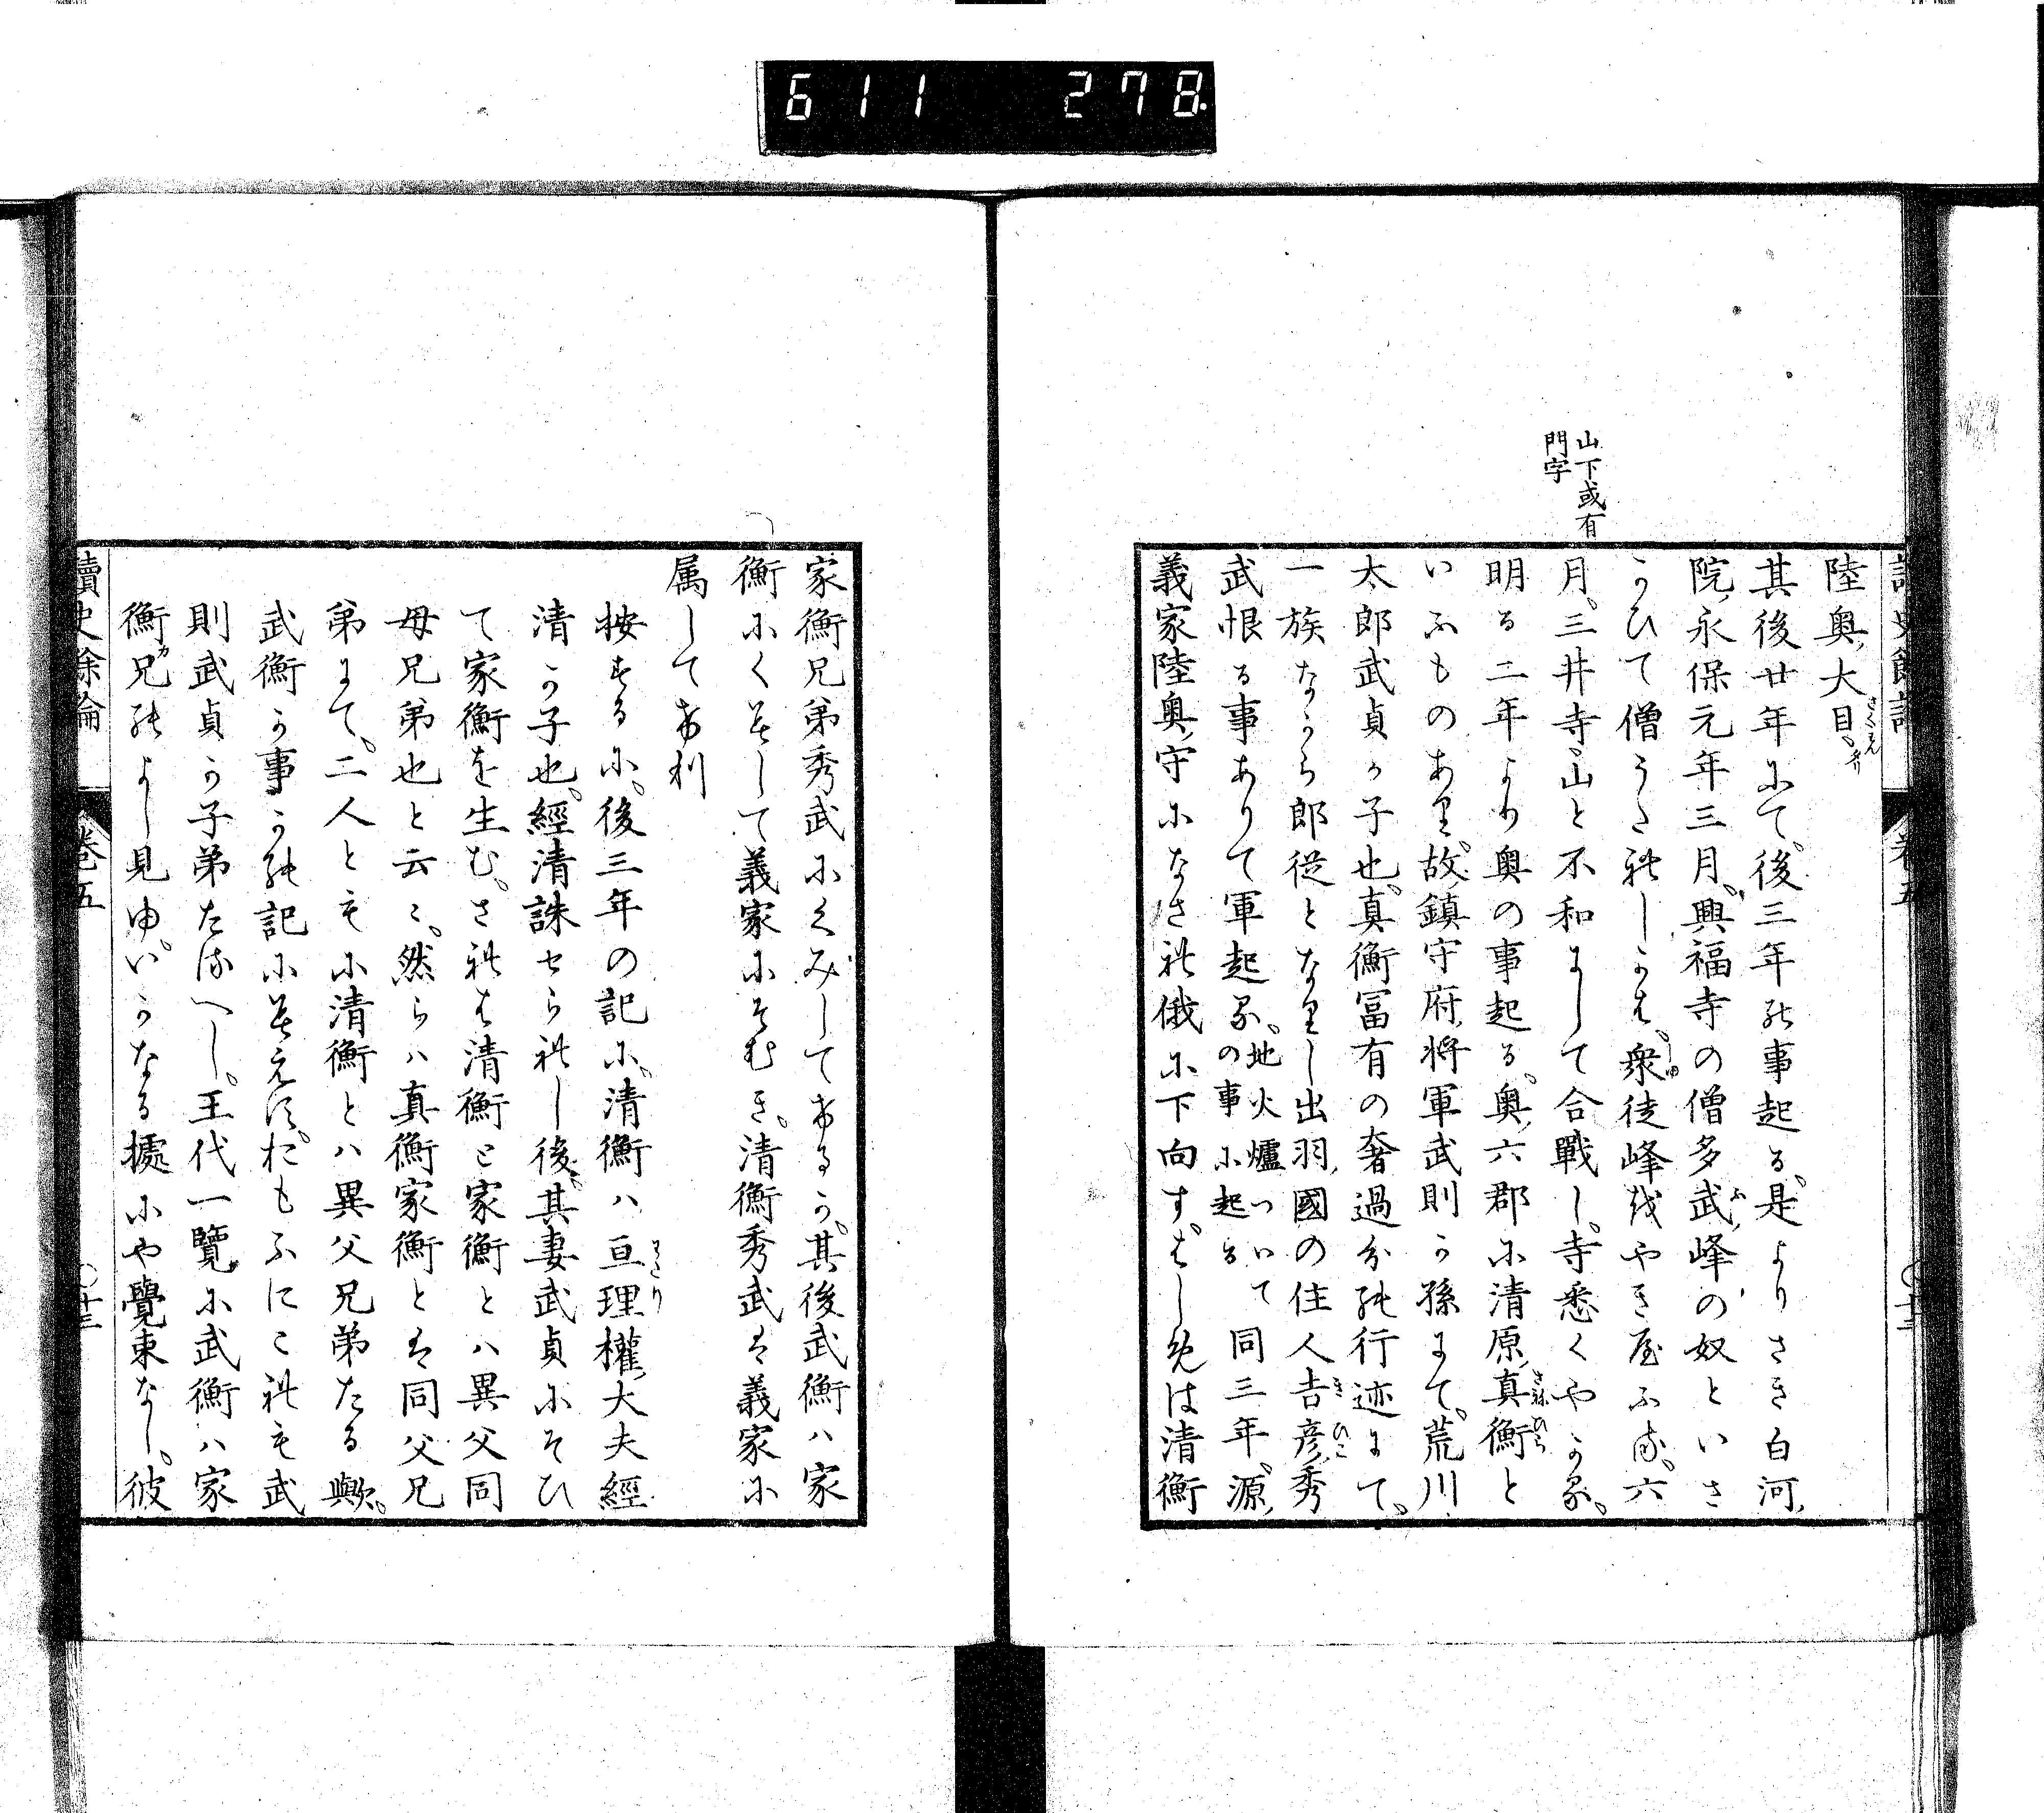 611 278
山下或有
門字
陸奥大目
其後廿年にて後三年の事起る是よりさき白河
院永保元年三月興福寺の僧多武峰の奴といさ
かひて僧うたれしかは衆徒峰をやき屋ふる六
月三井寺山と不和にして合戰し寺悉くやかる
明る二年より奥の事起る奥六郡に清原真衡と
いふものあり故鎮守府将軍武則か孫にて荒川
太郎武貞か子也真衡冨有の奢過分の行迹にて
一族なから郎従となりし出羽國の住人吉彦秀
武恨る事ありて軍起る地火爐ついて
の事に起る
同三年源
義家陸奥守になされ俄に下向すはしめは清衡
家衡兄弟秀武にくみしてあるか其後武衡ハ家
衡にくみして義家にそむき清衡秀武は義家に
属してあり
按するに後三年の記に清衡ハ亘理權大夫經
清か子也經清誅せられし後其妻武貞にそひ
て家衡を生むされは清衡と家衡とハ異父同
母兄弟也と云々然らハ真衡家衡とは同父兄
弟にて二人ともに清衡とハ異父兄弟たる歟
武衡か事かの記に見えすおもふにこれも武
則武貞か子弟たるへし王代一覽に武衡ハ家
衡カ兄のよし見ゆいかなる據にや覺束なし彼
讀史餘論
卷五
〇十三